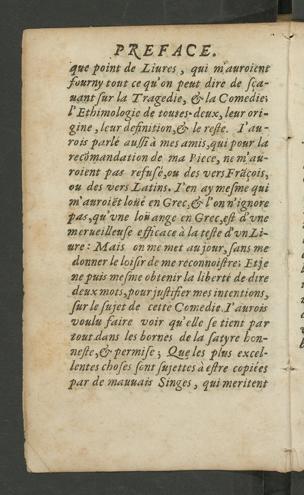 PREFACE.
que point de Liures, qui m'auroient
fourny tout ce qu'on peut dire de sça-
uant sur la Tragedie, & la Comedie;
l'Ethimologie de toutes-deux, leur ori-
gine, leur definition, & le reste. I'au-
rois parlé aussi à mes amis, qui pour la
recõmandation de ma Piece, ne m'au-
roient pas refusé, ou des vers Frãçois,
ou des vers Latins. I'en ay mesme qui
m'auroiẽt loüé en Grec, & l'on n'ignore
pas, qu'vne loüange en Grec, est d'vne
merueilleuse efficace à la teste d'vn Li-
ure: Mais on me met au jour, sans me
donner le loisir de me reconnoistre: Et je
ne puis mesme obtenir la liberté de dire
deux mots, pour justifier mes intentions,
sur le sujet de cette Comedie. I'aurois
voulu faire voir qu'elle se tient par
tout dans les bornes de la satyre hon-
neste, & permise; Que les plus excel-
lentes choses sont sujettes à estre copiées
par de mauuais Singes, qui meritent